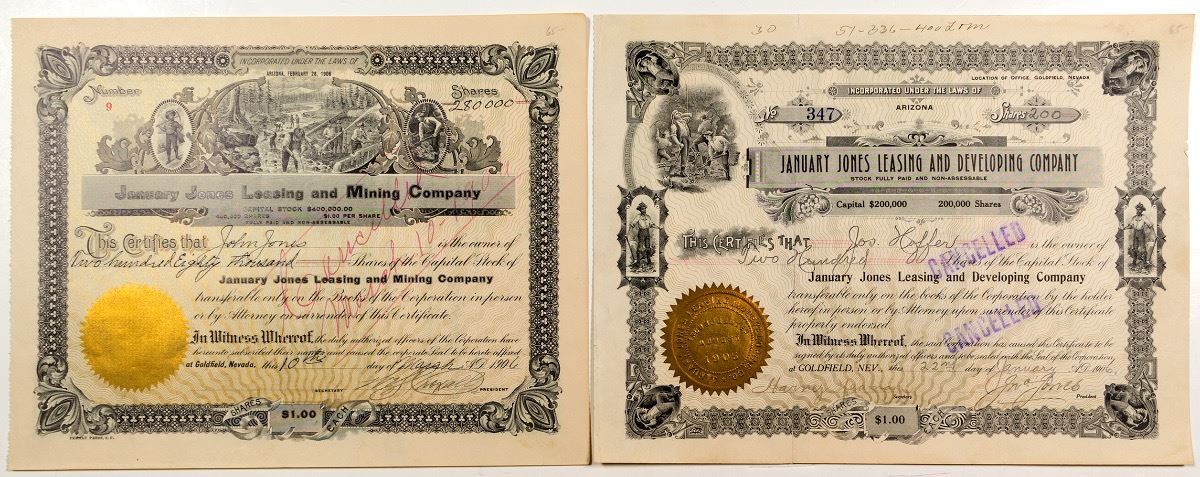 65-
INCORPORATED UNDER THE LAWS OF
ARIZONA, FEBRUARY 28, 1906
Number
9
Shares
280000
January Jones Leasing and Mining Company
CAPITAL STOCK $400,000.00
400,000 SHARES $1.00 PER SHARE
FULLY PAID AND NON-ASSESSABLE
This Certifies that John Jones is the owner of
Two hundred Eighty thousand Shares of the Capital Stock of
January Jones Leasing and Mining Company
transferable only on the Books of the Corporation in person
or by Attorney on surrender of this Certificate.
In Witness Whereof, the duly authorized officers of the Corporation have
hereunto subscribed their names and caused the corporate Seal to be hereto affixed
at Goldfield, Nevada. this 10th day of March A.D. 1906
Cancelled
SECRETARY PRESIDENT
SHARES $1.00 EACH
30 51-336-
65-
LOCATION OF OFFICE, GOLDFIELD, NEVADA
INCORPORATED UNDER THE LAWS OF
ARIZONA
No 347
Shares 200
JANUARY JONES LEASING AND DEVELOPING COMPANY
STOCK FULLY PAID AND NON-ASSESSABLE
Capital $200,000 200,000 Shares
THIS CERTIFIES THAT Jos. Hoffer is the owner of
Two Hundred Shares of the Capital Stock of
CANCELLED
January Jones Leasing and Developing Company
transferable only on the books of the Corporation by the holder
hereof in person or by Attorney upon surrender of this Certificate
properly endorsed.
CANCELLED
In Witness Whereof, the said Corporation has caused this Certificate to be
signed by its duly authorized officers and to be sealed with the Seal of the Corporation,
at GOLDFIELD, NEV., this 22nd day of January A.D. 1906
Jno Jones
Secretary President
1905
SHARES $1.00 EACH